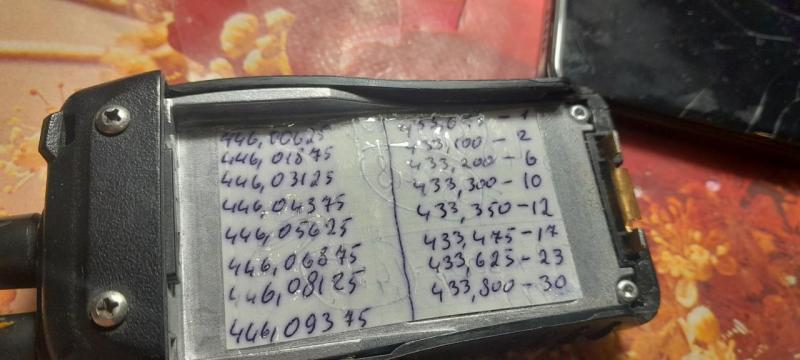 446,00625
446,01875
446,03125
446,04375
446,05625
446,06875
446,08125
446,09375
433,100 - 2
433,200 - 6
433,300 - 10
433,350 - 12
433,475 - 17
433,625 - 23
433,800 - 30